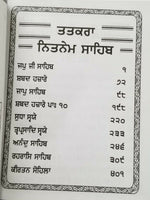 ਤਤਕਰਾ
ਨਿਤਨੇਮ ਸਾਹਿਬ
ਜਪੁ ਜੀ ਸਾਹਿਬ ੧
ਸ਼ਬਦ ਹਜ਼ਾਰੇ ੭੨
ਜਾਪੁ ਸਾਹਿਬ ੯੮
ਸ਼ਬਦ ਹਜ਼ਾਰੇ ਪਾ: ੧੦ ੧੯੮
ਸੁਧਾ ਸ੍ਵਯੇ ੨੨੦
ਤ੍ਵਪ੍ਰਸਾਦਿ ਸ੍ਵਯੇ ੨੨੩
ਅਨੰਦੁ ਸਾਹਿਬ ੨੪੬
ਰਹਰਾਸਿ ਸਾਹਿਬ ੩੦੯
ਕੀਰਤਨ ਸੋਹਿਲਾ ੪੦੧